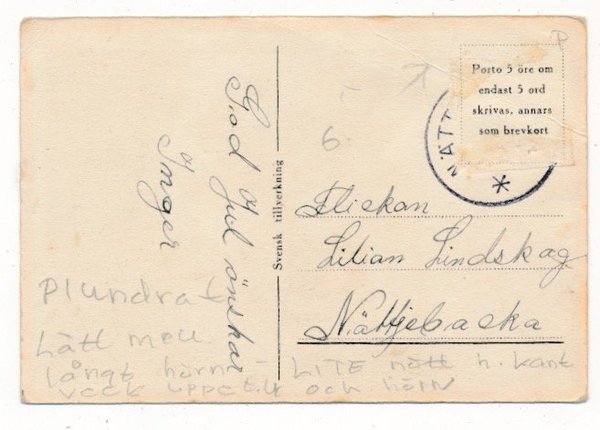 God Jul önskar
Inger
Svensk tillverkning
Porto 5 öre om
endast 5 ord
skrivas, annars
som brevkort
NÄTT
P
6
Flickan
Lilian Lindskog
Nättjebacka
Plundrat
Lätt
långt hörn- LITE nött h. kant
veck uppe t.h och hörn